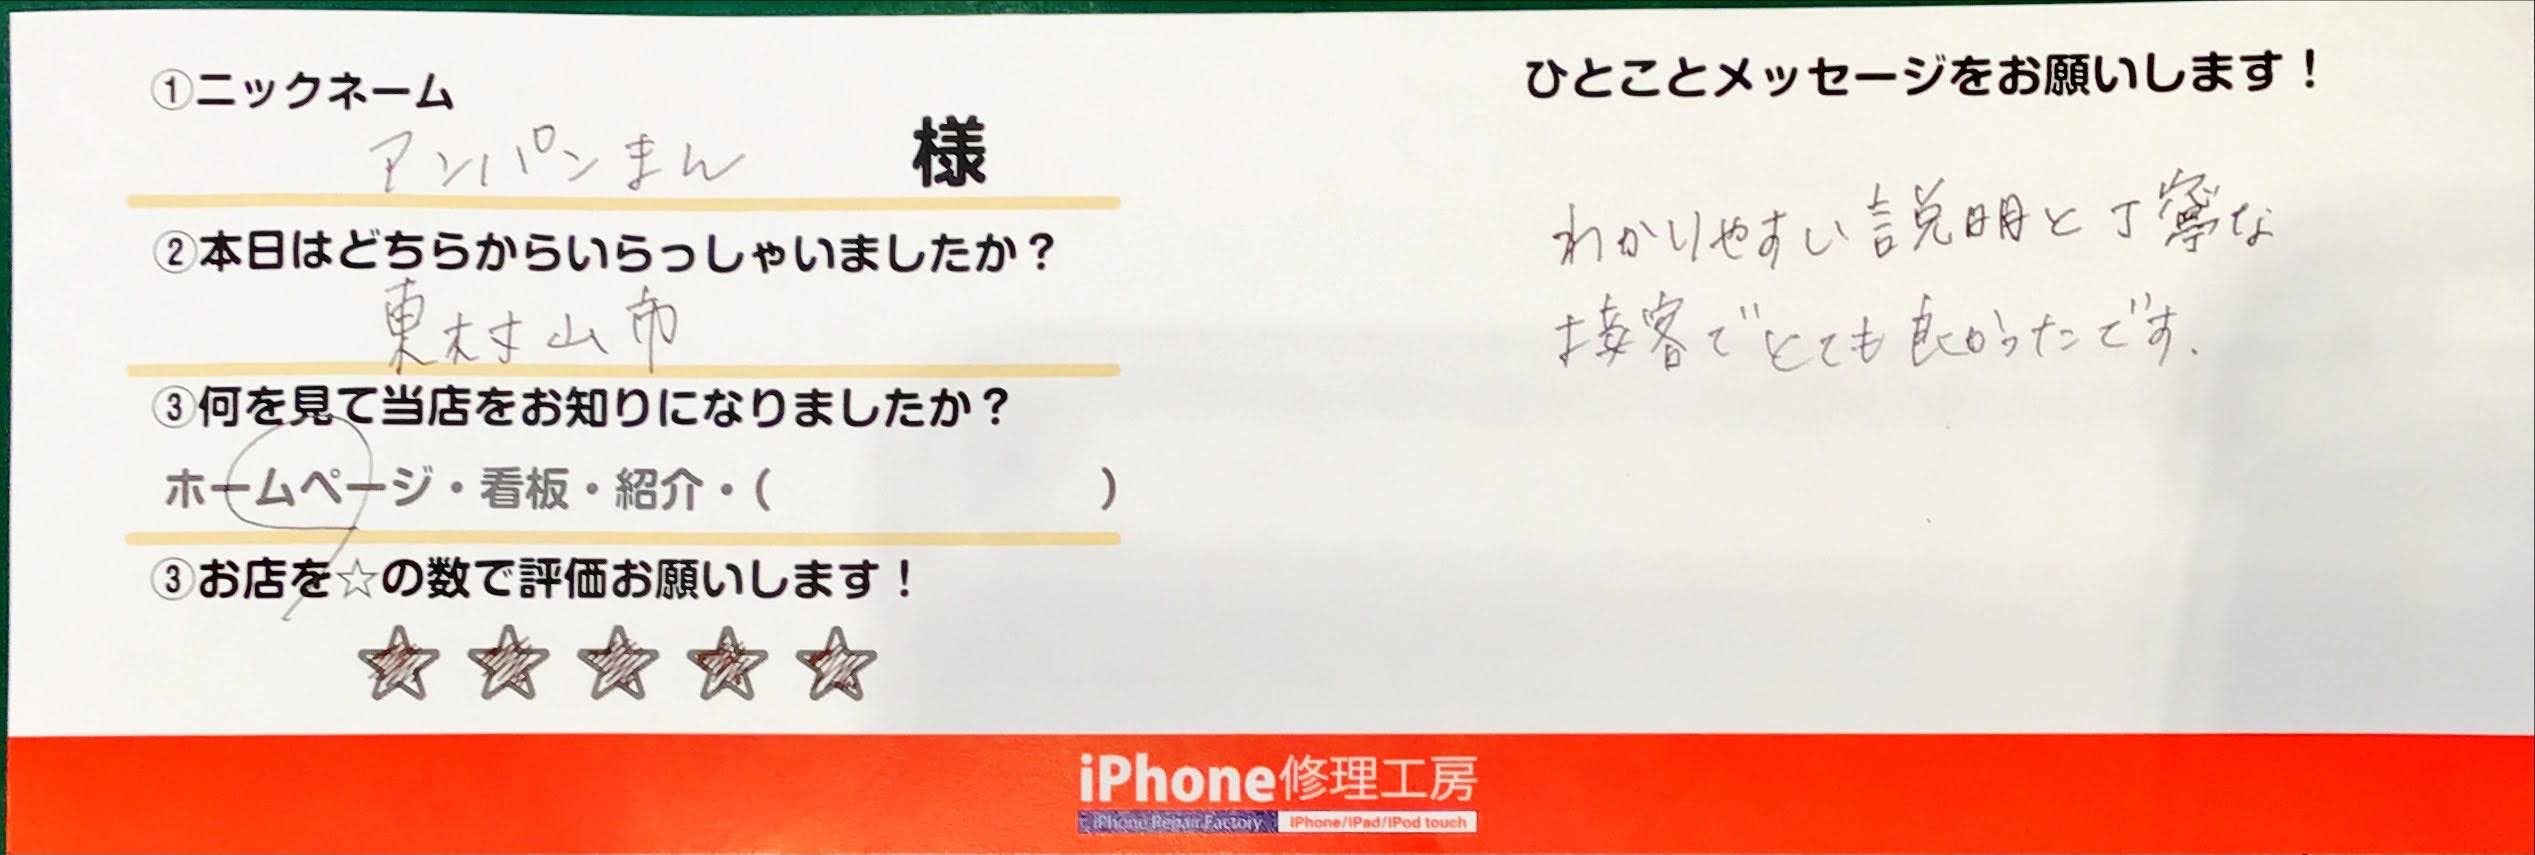 ①ニックネーム
アンパンまん 様
②本日はどちらからいらっしゃいましたか？
東村山市
③何を見て当店をお知りになりましたか？
ホームページ・看板・紹介・( )
③お店を☆の数で評価お願いします！
ひとことメッセージをお願いします！
わかりやすい説明と丁寧な
接客でとても良かったです.
iPhone修理工房
iPhone Repair Factory iPhone/iPad/iPod touch